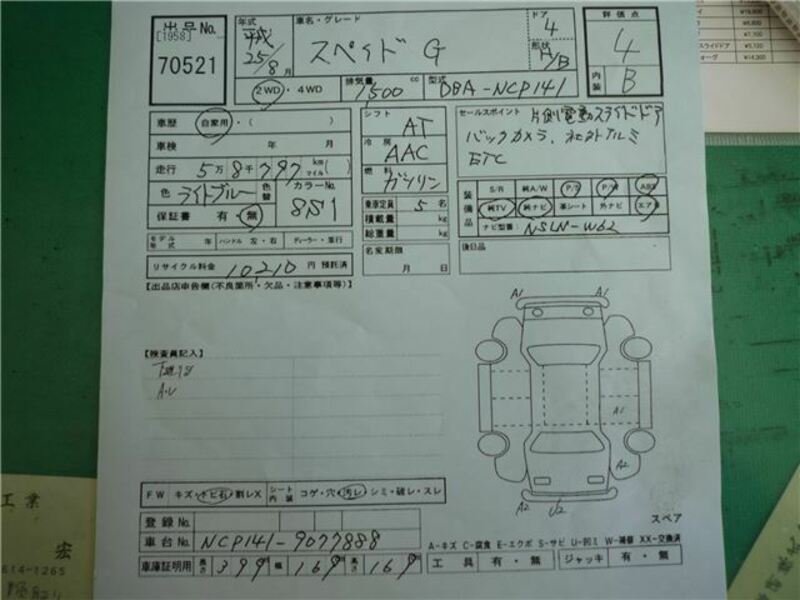 出品No.
[1958]
70521
年式 平成 25/8月
車名・グレード スペイド G
ドア 4
形状 H/B
評価点 4
内装 B
2WD・4WD
排気量 1,500 cc
型式 DBA-NCP141
車歴 自家用・( )
車検 年 月
走行 5万8千797 km マイル( )
色 ライトブルー 色替 カラーNo. 8S1
保証書 有・無
モデル年式 年 ハンドル 左・右 ディーラー・並行
リサイクル料金 10,210 円 預託済
シフト AT
冷房 AAC
燃料 ガソリン
乗車定員 5 名
積載量 kg
総重量 kg
名変期限 月 日
セールスポイント 片側電動スライドドア
バックカメラ、社外アルミ
ETC
装備品
S/R 純A/W P/S P/W ABS
純TV 純ナビ 革シート 外ナビ エアB
ナビ型番: NSLN-W62
後日品
【出品店申告欄(不良箇所・欠品・注意事項等)】
【検査員記入】
A1 A1
A1
A2
A2 U2
スペア
FW キズ・トビ石・割レX シート内装 コゲ・穴・汚レ・シミ・破レ・スレ
登録No.
車台No. NCP141-9077888
車庫証明用 長さ 399 幅 169 高さ 169
A-キズ C-腐食 E-エクボ S-サビ U-凹ミ W-補修 XX-交換済
工具 有・無 ジャッキ 有・無
工業
宏
614-1265
スライドドア